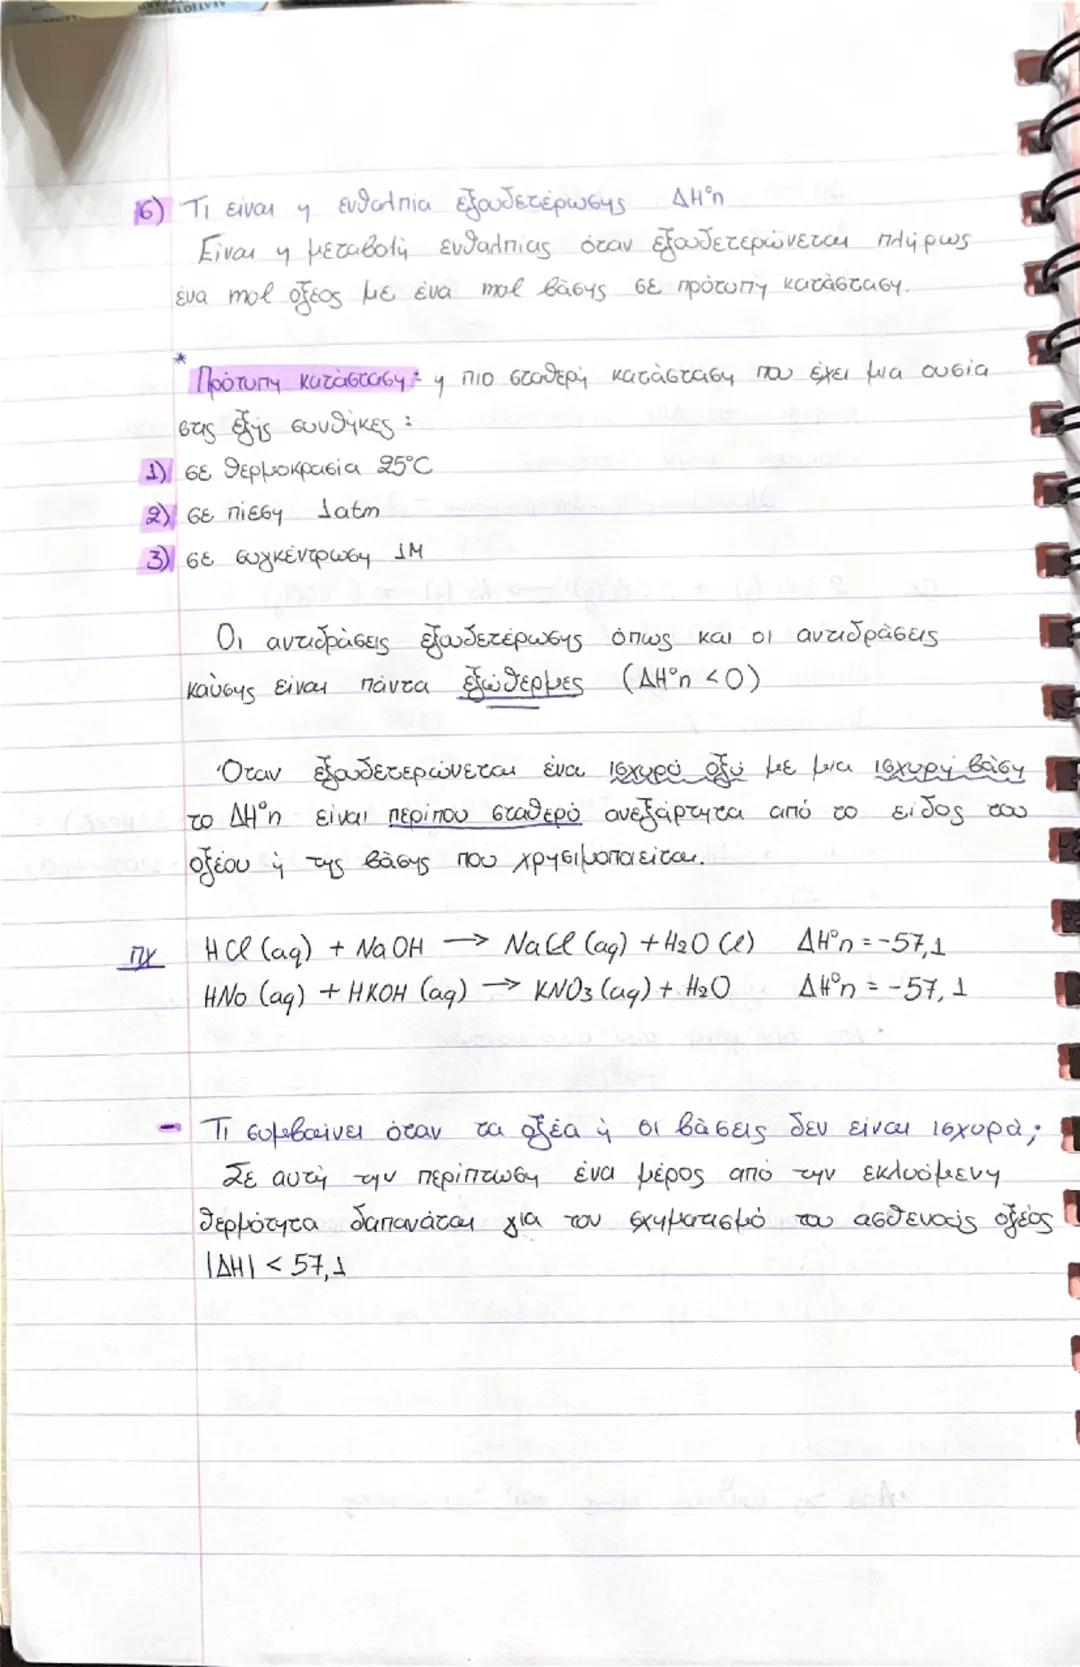 6) Τι είναι η ενθαλπία εξουδετέρωσης ΔH°n
Είναι η μεταβολή ενθαλπίας όταν εξουδετερώνεται πλήρως
ένα mol οξέος με ένα mol βάσης σε πρότυπη κατάσταση.
*
Πρότυπη κατάσταση: η πιο σταθερή κατάσταση που έχει μια ουσία
στις εξής συνθήκες:
1) σε θερμοκρασία 25°C
2) σε πίεση 1atm
3) σε συγκέντρωση 1M
Οι αντιδράσεις εξουδετέρωσης όπως και οι αντιδράσεις
καύσης είναι πάντα εξώθερμες (ΔH°n <0)
Όταν εξουδετερώνεται ένα ισχυρό οξύ με μια ισχυρή βάση
το ΔH°n είναι περίπου σταθερό ανεξάρτητα από το είδος του
οξέου ή της βάσης που χρησιμοποιείται.
πχ HCl (aq) + NaOH → NaCl (aq) + H2O (l) ΔH°n = -57,1
HNo (aq) + HKOH (aq) → KNO3 (aq) + H2O ΔH°n = -57,1
- Τι συμβαίνει όταν τα οξέα ή οι βάσεις δεν είναι ισχυρά;
Σε αυτή την περίπτωση ένα μέρος από την εκλυόμενη
θερμότητα δαπανάται για τον σχηματισμό του ασθενούς οξέος
|ΔH| < 57,1